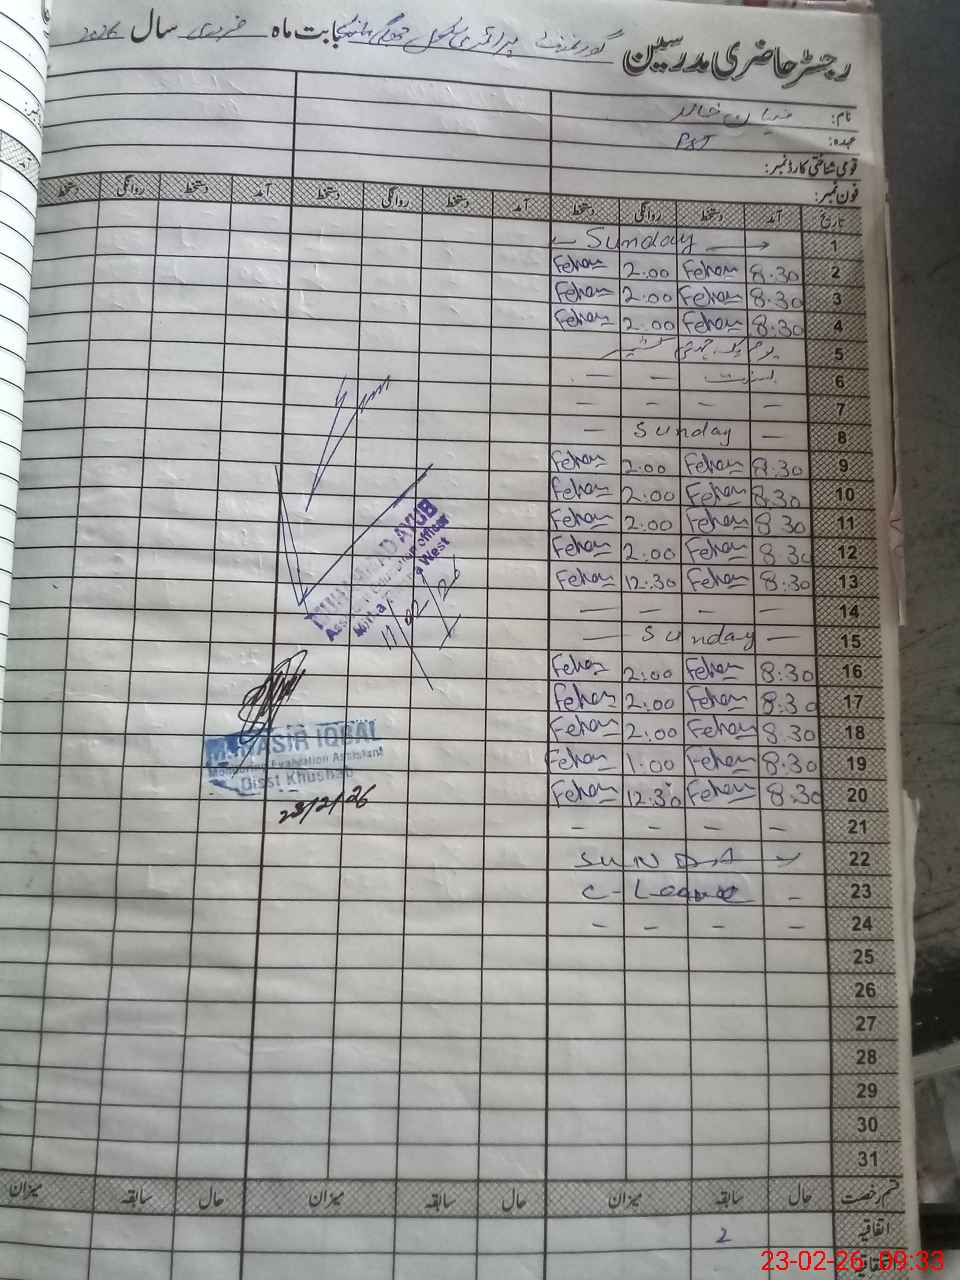 رجسٹر حاضری مدرسین گورنمنٹ پرائمری سکول بابت ماہ فروری سال 2026
نام:
عہدہ: PST
قومی شناختی کارڈ نمبر:
فون نمبر:
تاریخ آمد دستخط روانگی دستخط آمد دستخط روانگی دستخط آمد دستخط روانگی دستخط
1 Sunday
2 8.30 Feham 2.00 Feham
3 8.30 Feham 2.00 Feham
4 8.30 Feham 2.00 Feham
5 یوم یکجہتی کشمیر
6 بسنت — —
7 — — — —
8 — Sunday —
9 8.30 Feham 2.00 Feham
10 8.30 Feham 2.00 Feham
11 8.30 Feham 2.00 Feham
12 8.30 Feham 2.00 Feham
13 8.30 Feham 12.30 Feham
14 — — — —
15 — Sunday —
16 8.30 Feham 2.00 Feham
17 8.30 Feham 2.00 Feham
18 8.30 Feham 2.00 Feham
19 8.30 Feham 1.00 Feham
20 8.30 Feham 12.30 Feham
21 — — — —
22 SUNDAY
23 C-Leave —
24 — — — —
25
26
27
28
29
30
31
AYUB
Education officer
West
11/02/26
IQBAL
Monitoring Evaluation Assistant
Disst Khushab
23/2/26
قسم رخصت حال سابقہ میزان حال سابقہ میزان حال سابقہ میزان
اتفاقیہ 2
23-02-26 09:33